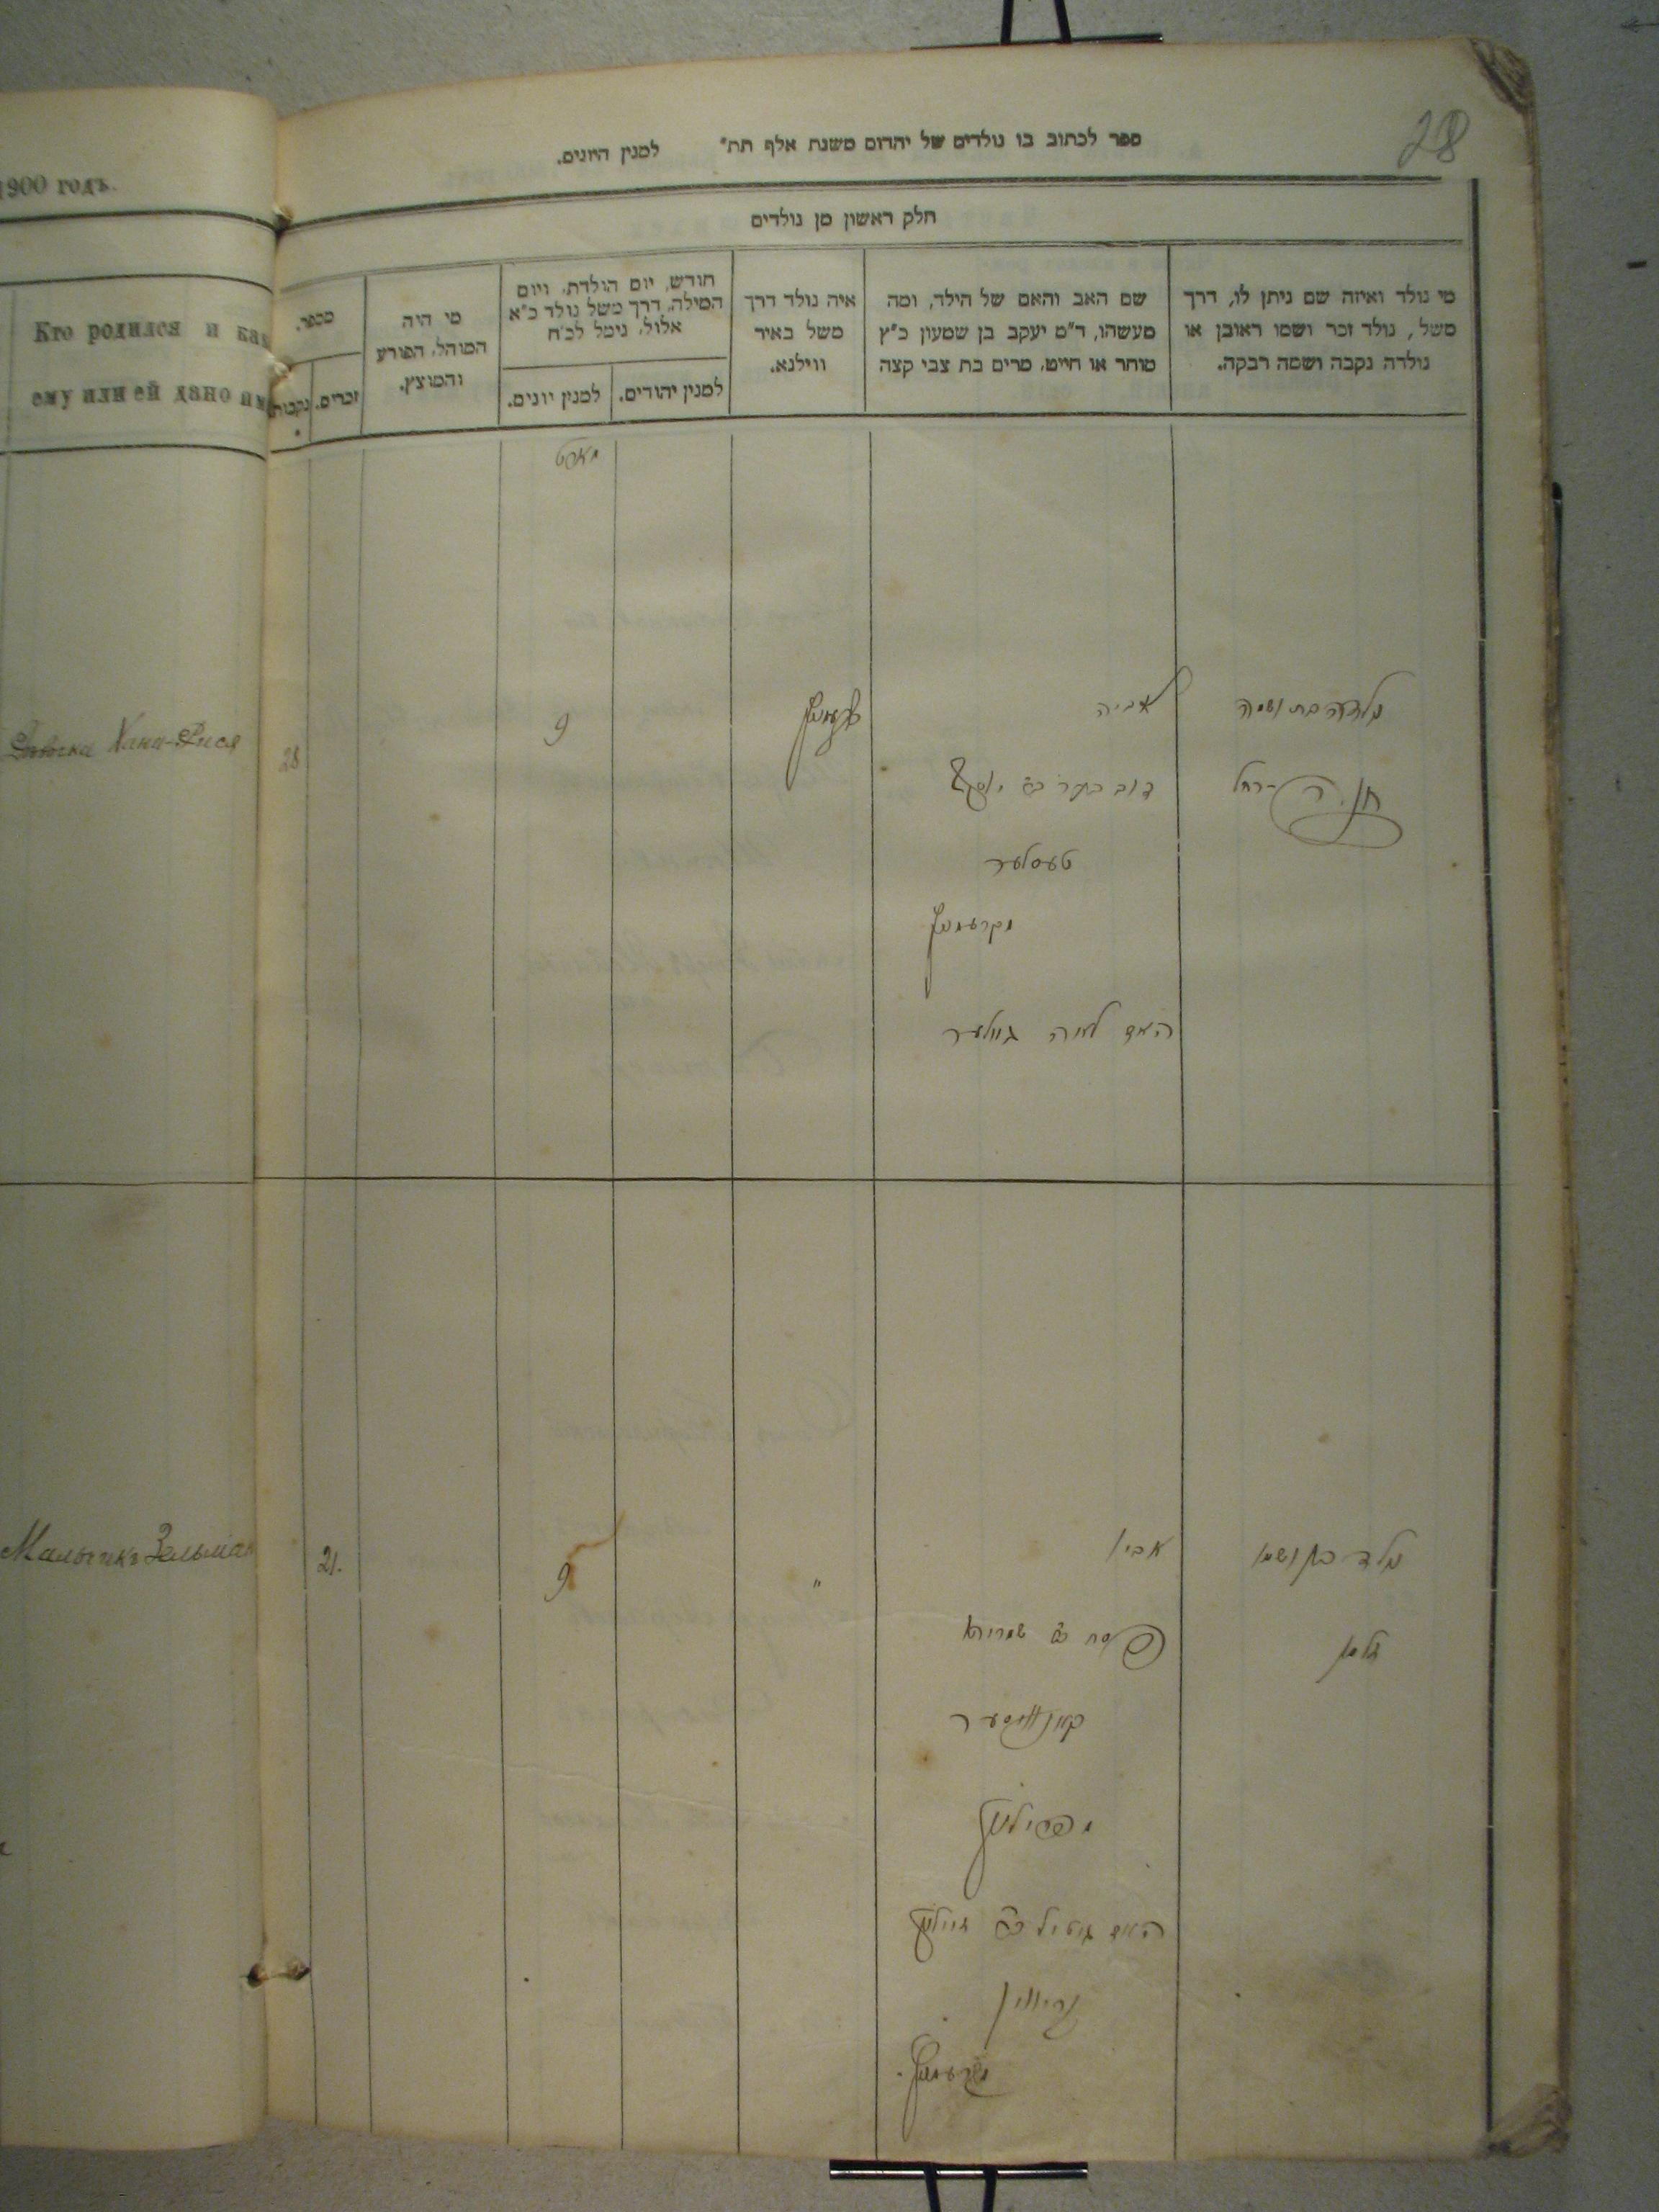 28
ספר לכתוב בו נולדים של יהדום משנת אלף תת״ למנין היונים.
1900 годъ.
חלק ראשון מן נולדים
מי נולד ואיזה שם ניתן לו, דרך
משל, נולד זכר ושמו ראובן או
נולדה נקבה ושמה רבקה.
שם האב והאם של הילד, ומה
מעשהו, ד״מ יעקב בן שמעון כ״ץ
סוחר או חייט, מרים בת צבי קצה
איה נולד דרך
משל באיר
ווילנא.
חודש, יום הולדת, ויום
המילה, דרך משל נולד כ״א
אלול, נימל לכ״ח
למנין יהודים.
למנין יונים.
מי היה
המוהל, הפורע
והמוצץ.
מספר.
זכרים.
נקבות
Кто родился и как
ему или ей дано им
מארט
נולדה בת ושמה
חנה-רחל
אביה
דוב בער ב״ר יוסף
טעסלער
מקרעמניץ
האם לאה
קרעמניץ
9
28
Хана-Рися
נולד בן ושמו
זלמן
אביו
פסח ב״ר שמריהו
האם
מקרעמניץ
"
9
21.
Мальчикъ Зельман